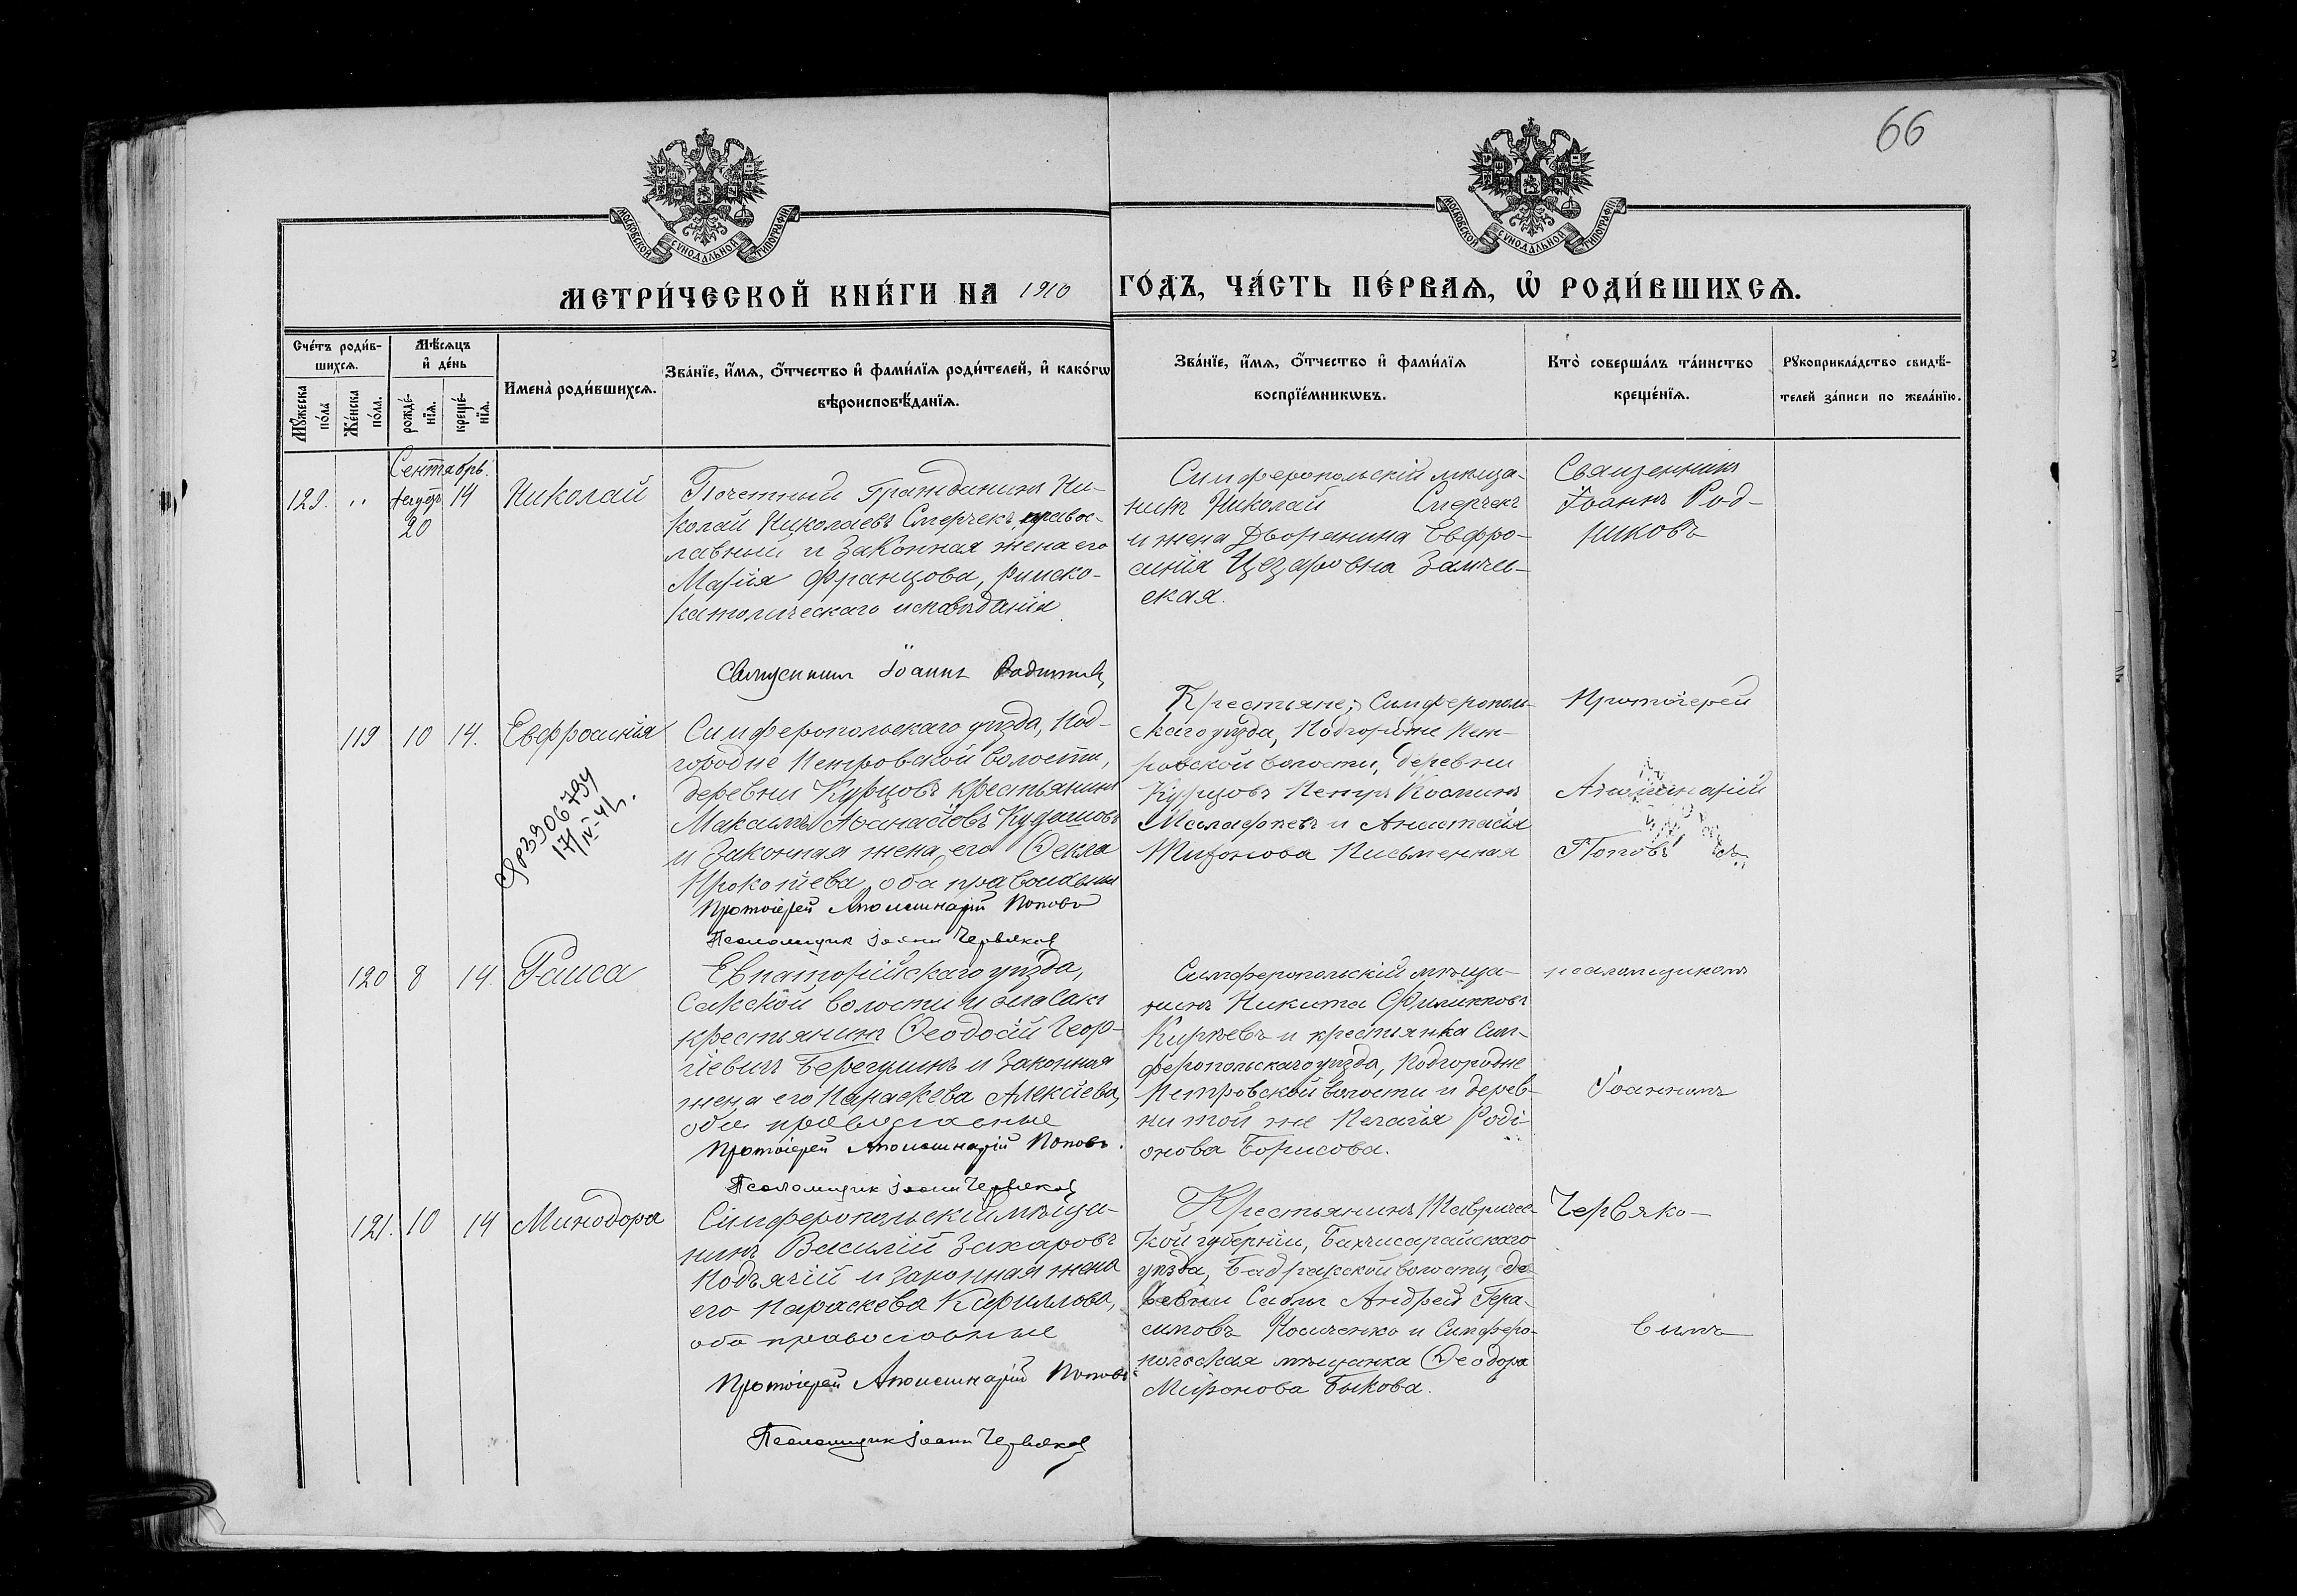 66
МОСКОВСКОЙ СѴНОДАЛЬНОЙ ТИПОГРАФІИ
МОСКОВСКОЙ СѴНОДАЛЬНОЙ ТИПОГРАФІИ
МЕТРИ́ЧЕСКОЙ КНИ́ГИ НА 1910 ГО́ДЪ, ЧА́СТЬ ПЕ́РВАѦ, Ѡ҆ РОДИ́ВШИХСѦ.
Сче́тъ роди́в-
шихсѧ.
Мꙋ́жеска по́лꙋ
Же́нска по́ла.
Мѣ́сѧцъ
и҆ де́нь
рожде́-
нїѧ.
креще́-
нїѧ.
Имена̀ роди́вшихсѧ.
Зва́нїе, и҆́мѧ, ѻ҆́тчество и҆ фами́лїѧ роди́телей, и҆ како́гѡ
вѣроисповѣ́данїѧ.
Зва́нїе, и҆́мѧ, ѻ҆́тчество и҆ фами́лїѧ
воспрїе́мникѡвъ.
Кто̀ соверша́лъ та́инство
креще́нїѧ.
Рꙋкоприкла́дство свидѣ́-
телей за́писи по жела́нїю.
Сентябрь.
129. " 20 14 Николай
Почетный Гражданинъ Ни-
колай Николаевъ Смерчекъ, правос-
лавный и законная жена его
Марія Францова, римско-
католическаго исповѣданія.
Священникъ Іоаннъ
Симферопольскій мѣща-
нинъ Николай Смерчекъ
и жена Дворянина Евфро-
синія Цезаровна
ская.
Священникъ
Іоаннъ Род-
никовъ
119 10 14. Евфросинія
Симферопольскаго уѣзда, Под-
городне Петровской волости,
деревни Курцовъ крестьянинъ
Максимъ Аѳанасіевъ Кудашовъ
и законная жена его Ѳекла
Прокопіева, оба православны
Протоіерей Аполлинарій Поповъ
Псаломщик Іоанн Червяков
17/IV-41.
Крестьяне; Симферополь-
скаго уѣзда, Подгородне Пет-
ровской волости, деревни
Курцовъ Петръ Косминъ
и Анастасія
Письменная
Протоіерей
Аполлинарій
Поповъ съ
120 8 14. Раиса
Евпаторійскаго уѣзда,
Сакской волости и села Саки
крестьянинъ Ѳеодосій Геор-
гіевичъ Берегулинъ и законная
жена его Параскева Алексіева,
оба православные
Протоіерей Аполлинарій Поповъ.
Псаломщик Іоанн Червяков
Симферопольскій мѣща-
нинъ Никита Филипповъ
Кирѣевъ и крестьянка Сим-
феропольскаго уѣзда, Подгородне
Петровской волости и дерев-
ни той же Пелагія Роді-
онова Борисова.
псаломщикомъ
Іоанномъ
121. 10 14 Минодора
Симферопольскій мѣща-
нинъ Василій Захаровъ
Подъячій и законная жена
его Параскева Кириллова,
оба православные
Протоіерей Аполлинарій Поповъ
Псаломщик Іоанн Червяков
Крестьянинъ Тавричес-
кой губерніи,
уѣзда, волости, де-
ревни Саблы Андрей Гера-
симовъ и Симферо-
польская мѣщанка Ѳеодора
Миронова Быкова.
Червяко-
вымъ